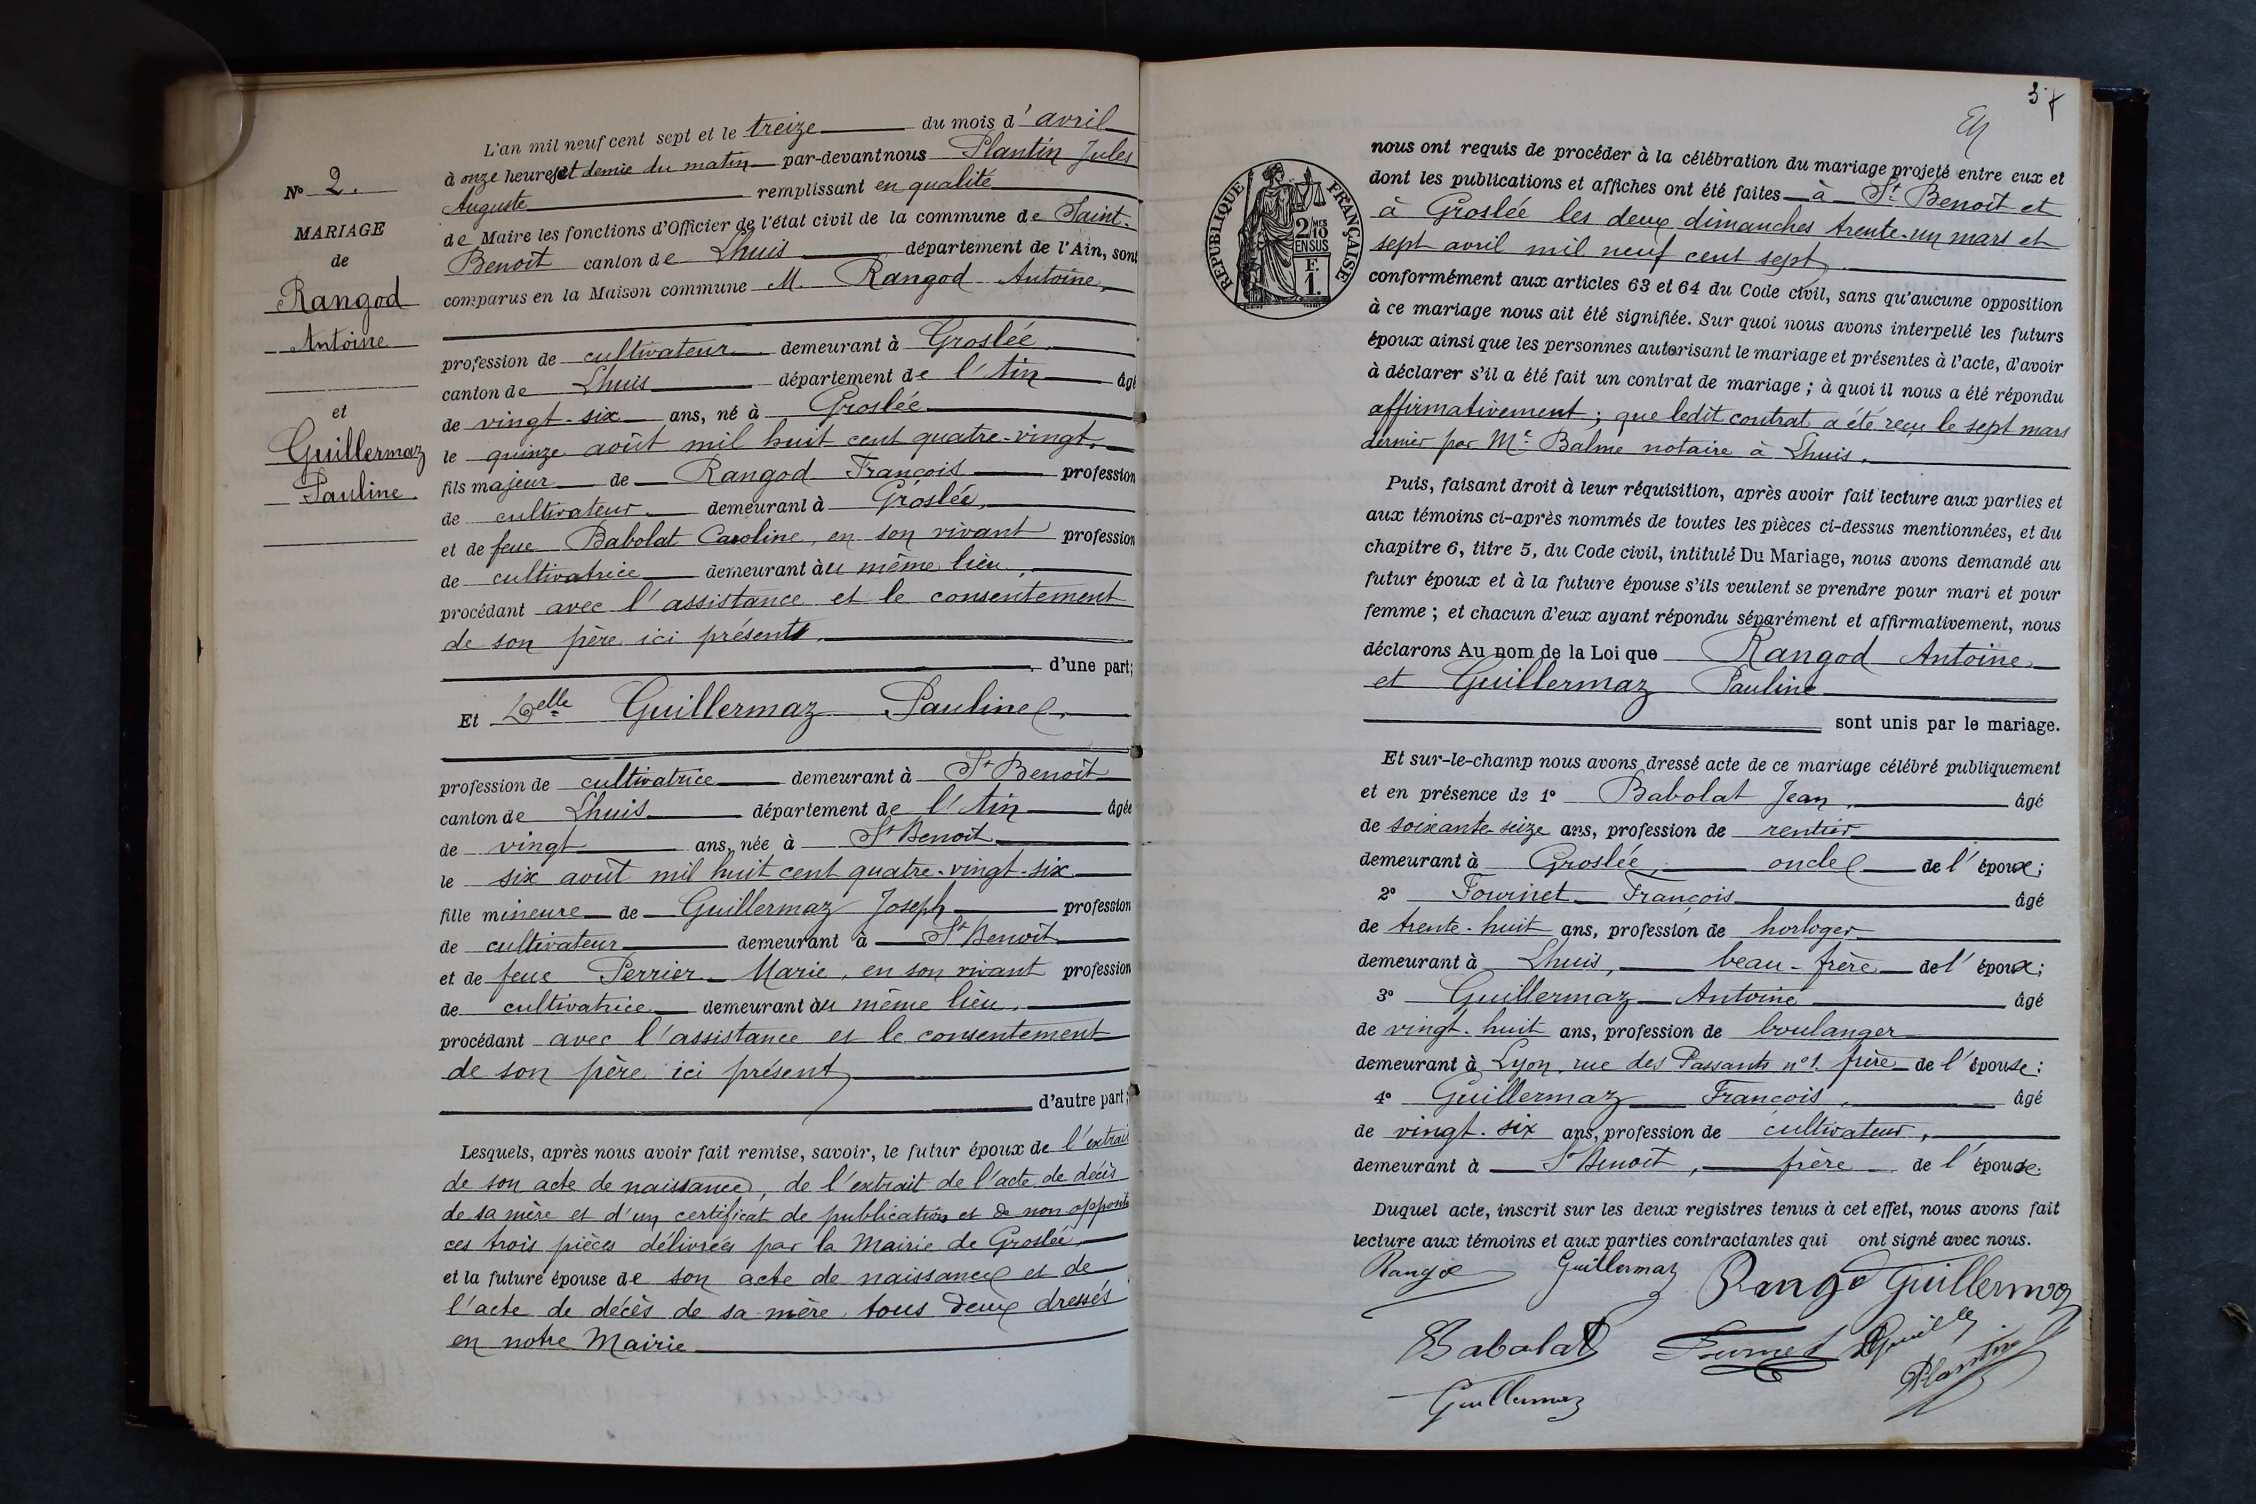 N° 2.
MARIAGE
de
Rangod
Antoine
et
Guillermaz
Pauline.
L'an mil neuf cent sept et le treize du mois d'avril
à onze heures et demie du matin par-devant nous Plantin Jules
Auguste remplissant en qualité
de Maire les fonctions d'Officier de l'état civil de la commune de Saint-
Benoit canton de Lhuis département de l'Ain, sont
comparus en la Maison commune M. Rangod Antoine,
profession de cultivateur demeurant à Groslée
canton de Lhuis département de l'Ain âgé
de vingt-six ans, né à Groslée
le quinze août mil huit cent quatre-vingt,
fils majeur de Rangod François profession
de cultivateur demeurant à Groslée,
et de feue Babolat Caroline, en son vivant profession
de cultivatrice demeurant au même lieu,
procédant avec l'assistance et le consentement
de son père ici présent
d'une part;
Et Delle Guillermaz Pauline,
profession de cultivatrice demeurant à St Benoit
canton de Lhuis département de l'Ain âgée
de vingt ans, née à St Benoit
le six août mil huit cent quatre-vingt-six
fille mineure de Guillermaz Joseph profession
de cultivateur demeurant à St Benoit
et de feue Perrier Marie, en son vivant profession
de cultivatrice demeurant au même lieu,
procédant avec l'assistance et le consentement
de son père ici présent
d'autre part;
Lesquels, après nous avoir fait remise, savoir, le futur époux de l'extrait
de son acte de naissance, de l'extrait de l'acte de décès
de sa mère et d'un certificat de publication et de non opposition
ces trois pièces délivrées par la Mairie de Groslée,
et la future épouse de son acte de naissance et de
l'acte de décès de sa mère, tous deux dressés
en notre Mairie
3
REPUBLIQUE FRANÇAISE
2/10 MES
EN SUS
F.
1.
nous ont requis de procéder à la célébration du mariage projeté entre eux et
dont les publications et affiches ont été faites à St Benoit et
à Groslée les deux dimanches trente-un mars et
sept avril mil neuf cent sept,
conformément aux articles 63 et 64 du Code civil, sans qu'aucune opposition
à ce mariage nous ait été signifiée. Sur quoi nous avons interpellé les futurs
époux ainsi que les personnes autorisant le mariage et présentes à l'acte, d'avoir
à déclarer s'il a été fait un contrat de mariage ; à quoi il nous a été répondu
affirmativement ; que ledit contrat a été reçu le sept mars
dernier par Me Balme notaire à Lhuis.
Puis, faisant droit à leur réquisition, après avoir fait lecture aux parties et
aux témoins ci-après nommés de toutes les pièces ci-dessus mentionnées, et du
chapitre 6, titre 5, du Code civil, intitulé Du Mariage, nous avons demandé au
futur époux et à la future épouse s'ils veulent se prendre pour mari et pour
femme ; et chacun d'eux ayant répondu séparément et affirmativement, nous
déclarons Au nom de la Loi que Rangod Antoine
et Guillermaz Pauline
sont unis par le mariage.
Et sur-le-champ nous avons dressé acte de ce mariage célébré publiquement
et en présence de 1° Babolat Jean, âgé
de soixante-seize ans, profession de rentier
demeurant à Groslée, oncle de l'époux;
2° Fournet François âgé
de trente-huit ans, profession de horloger
demeurant à Lhuis, beau-frère de l'époux;
3° Guillermaz Antoine âgé
de vingt-huit ans, profession de boulanger
demeurant à Lyon, rue des Passants n°1. frère de l'épouse;
4° Guillermaz François, âgé
de vingt-six ans, profession de cultivateur,
demeurant à St Benoit, frère de l'épouse.
Duquel acte, inscrit sur les deux registres tenus à cet effet, nous avons fait
lecture aux témoins et aux parties contractantes qui ont signé avec nous.
Guillermaz Guillermaz
Babolat Plantin
Guillermaz